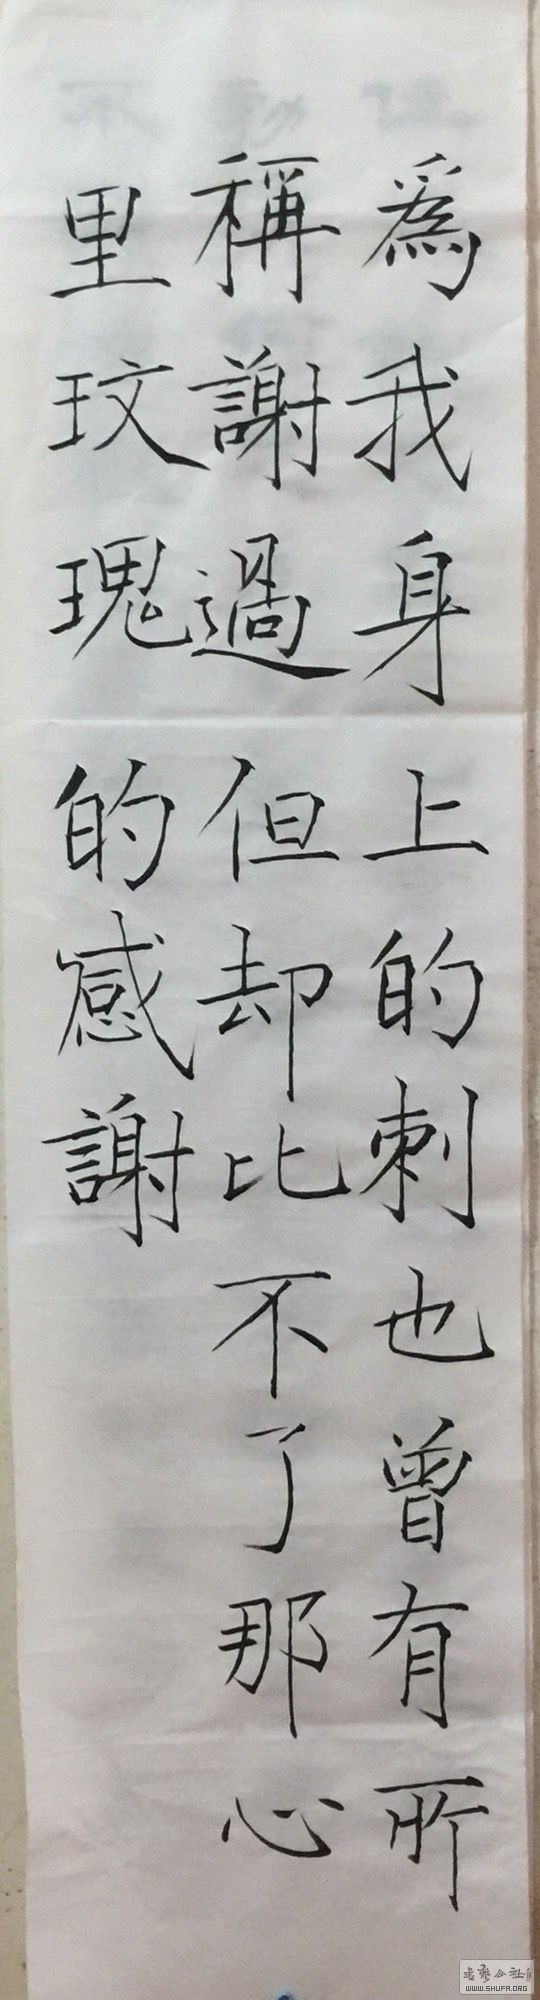 為我身上的刺也曾有所
稱謝過但却比不了那心
里玟瑰的感謝
WWW.SHUFA.ORG